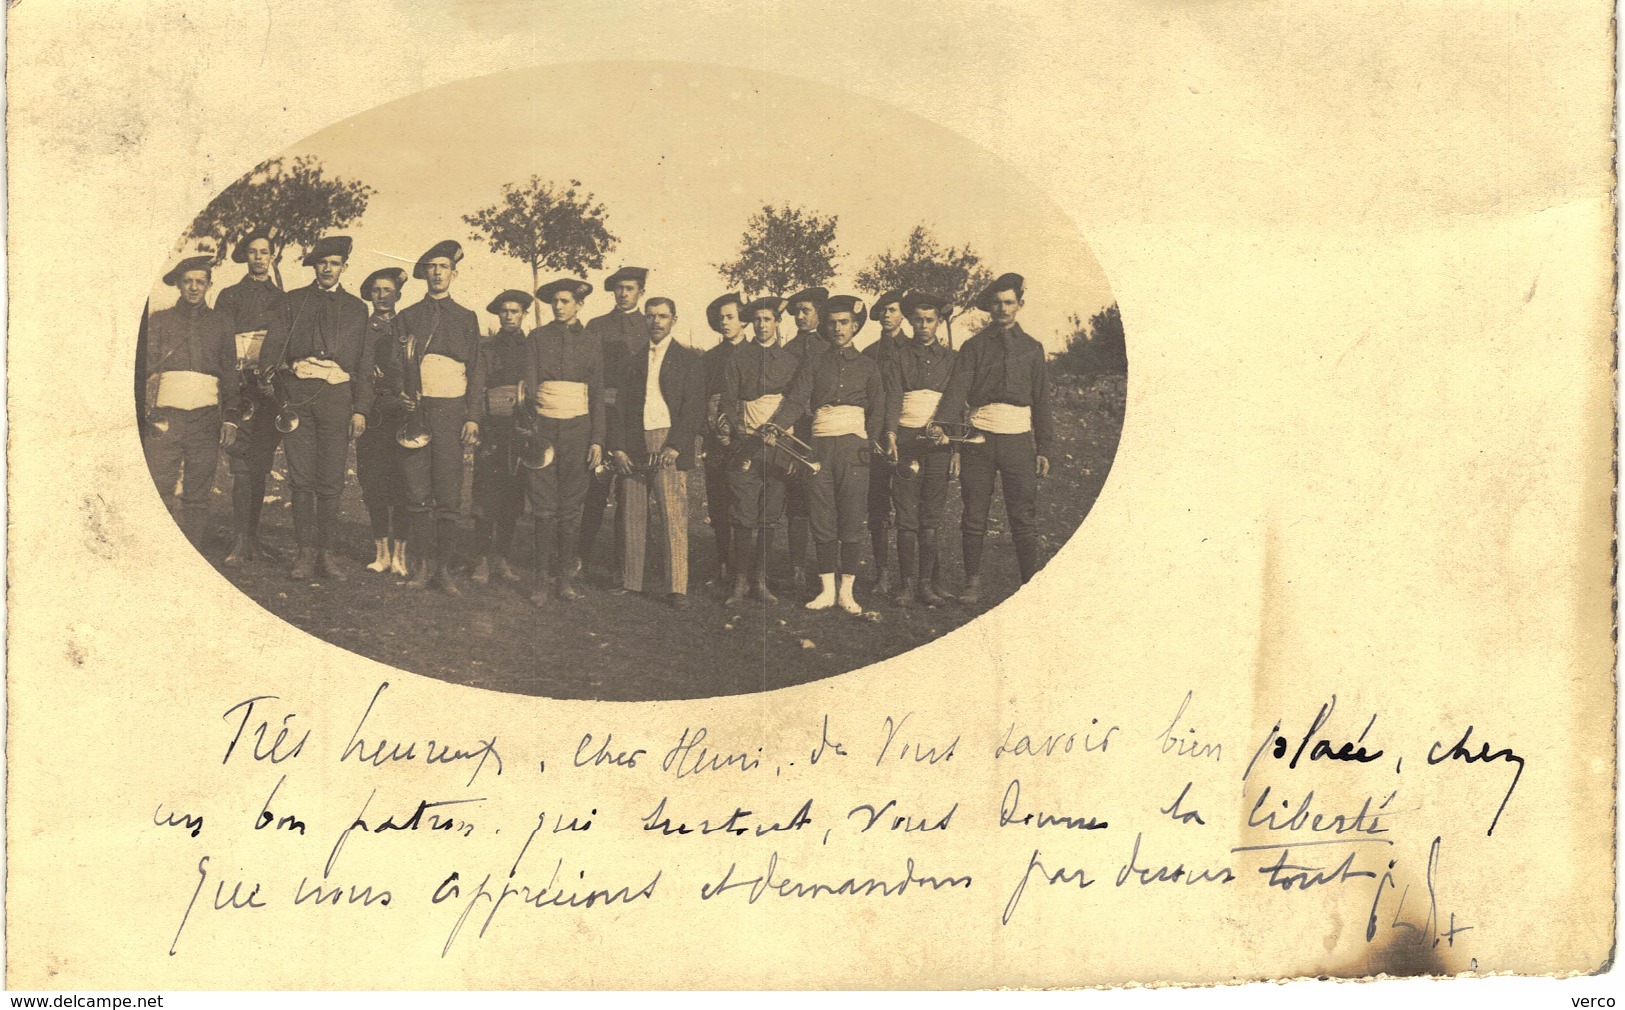 Très heureux, cher Henri, de Vous savoir bien placé, chez
un bon patron qui surtout, Vous donne la liberté
que nous apprécions et demandons par dessus tout;
delcampe.net
verco